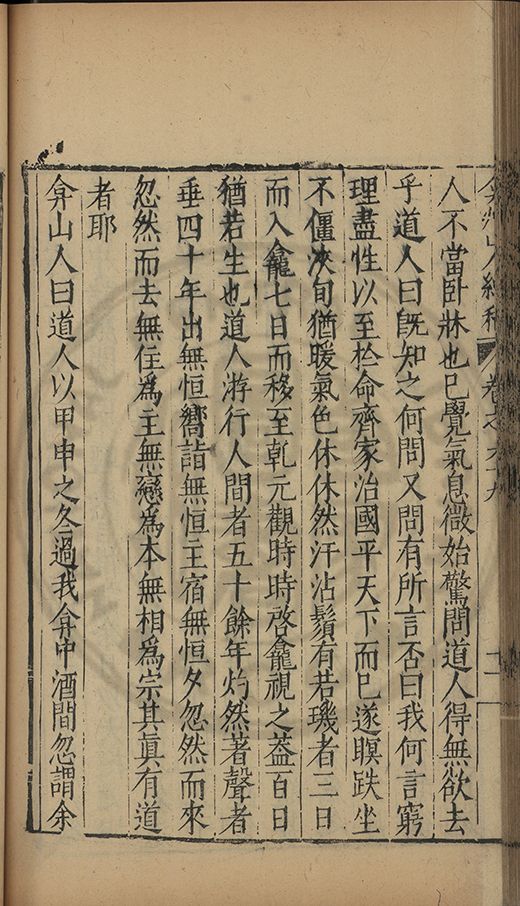 弇州山人續稿 卷之六十九
人不當臥牀也已覺氣息微始驚問道人得無欲去
乎道人曰旣知之何問又問有所言否曰我何言窮
理盡性以至於命齊家治國平天下而已遂瞑趺坐
不僵浹旬猶暖氣色休休然汗沾鬚有若璣者三日
而入龕七日而移至乾元觀時時啓龕視之葢百日
猶若生也道人游行人間者五十餘年灼然著聲者
垂四十年出無恒嚮詣無恒主宿無恒夕忽然而來
忽然而去無住爲主無戀爲本無相爲宗其眞有道
者耶
弇山人曰道人以甲申之冬過我弇中酒間忽謂余